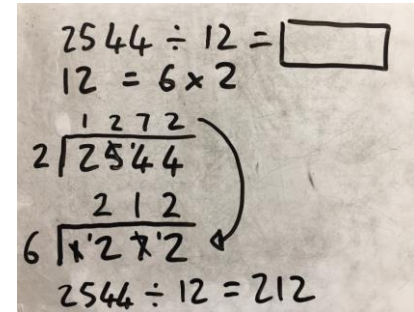 2544 ÷ 12 =
12 = 6 x 2
1 2 7 2
2 2 5 ¹4 4
2 1 2
6 1 ¹2 7 ¹2
2544 ÷ 12 = 212